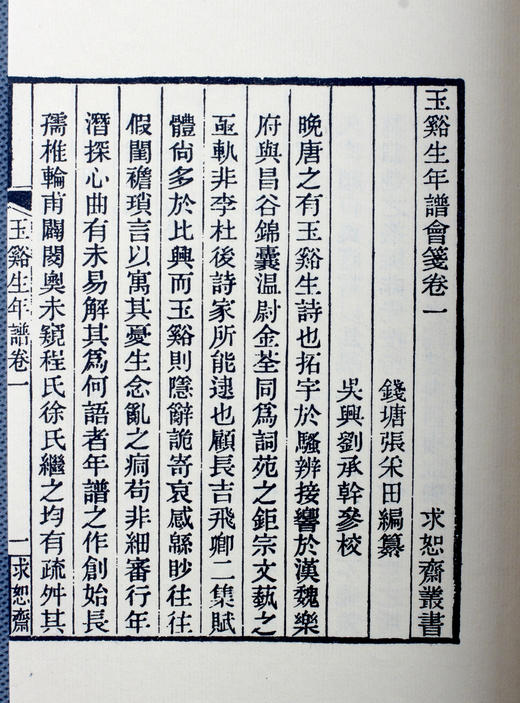 玉谿生年譜會箋卷一
求恕齋叢書
錢塘張采田編纂
吳興劉承幹參校
晚唐之有玉谿生詩也拓宇於騷辨接響於漢魏樂
府與昌谷錦囊温尉金荃同爲詞苑之鉅宗文藝之
亟軌非李杜後詩家所能逮也顧長吉飛卿二集賦
體尙多於比興而玉谿則隱辭詭寄哀感緜眇往往
假閨襜瑣言以寓其憂生念亂之痌苟非細審行年
潛探心曲有未易解其爲何語者年譜之作創始長
孺椎輪甫闢閫奧未窺程氏徐氏繼之均有疏舛其
玉谿生年譜卷一
一
求恕齋